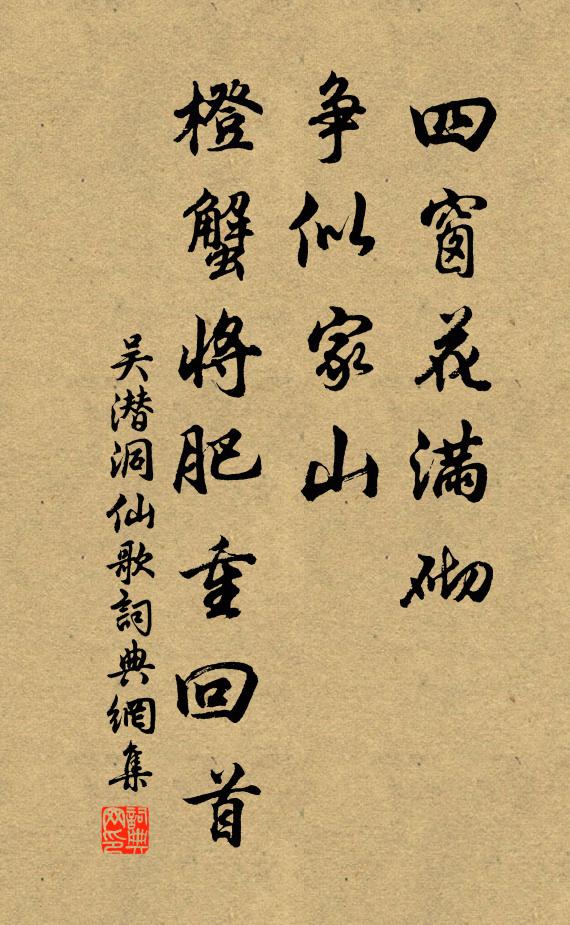 四窗花满砌
争似家山
橙蟹将肥重回首
吴潜洞仙歌詞典網集
詞典網印